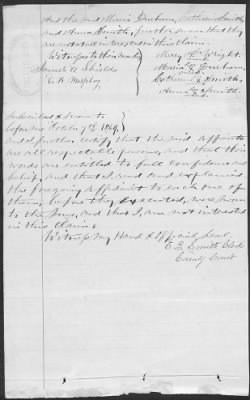 And the said Maria Denham, Catharine Smith
and Anna Smith, further swear that they
are not interested in this claim.
Witnesses to their marks
Samuel A Shields
C. R.
Mary Wright
Maria Denham
Catharine Smith
Anna Smith
Subscribed & sworn to
before me October 9th 1869
and I further certify that the said affiants
are all respectable persons, and that their
words are entitled to full confidence and
belief, and that I read and explained
the foregoing affidavit to each one of
them, before they executed, were sworn
to the same, and that I am not interested
in this claim
Witness my Hand & Official Seal,
E. E. Smith Clerk
County Court